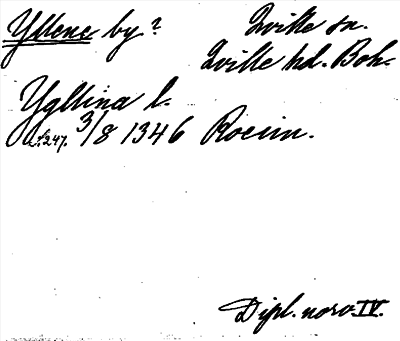 Yllene by? Qville sn.
Qville hd. Boh-
Ygllina l.
s. 247. 3/8 1346 Roeum.
Dipl. norv. IV.